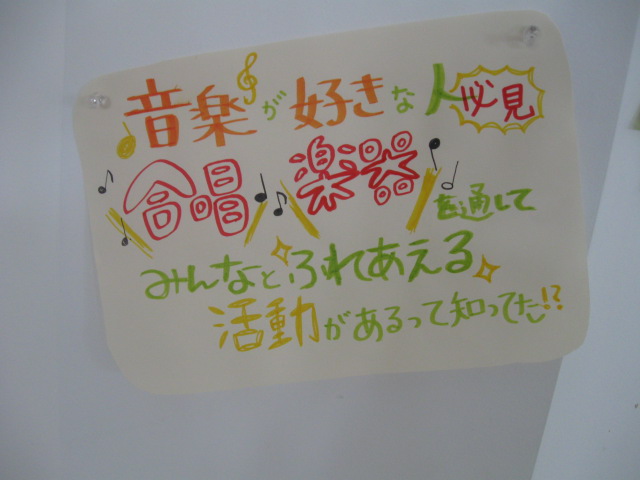 音楽が好きな人必見
合唱 楽器を通して
みんなとふれあえる
活動があるって知ってた!?